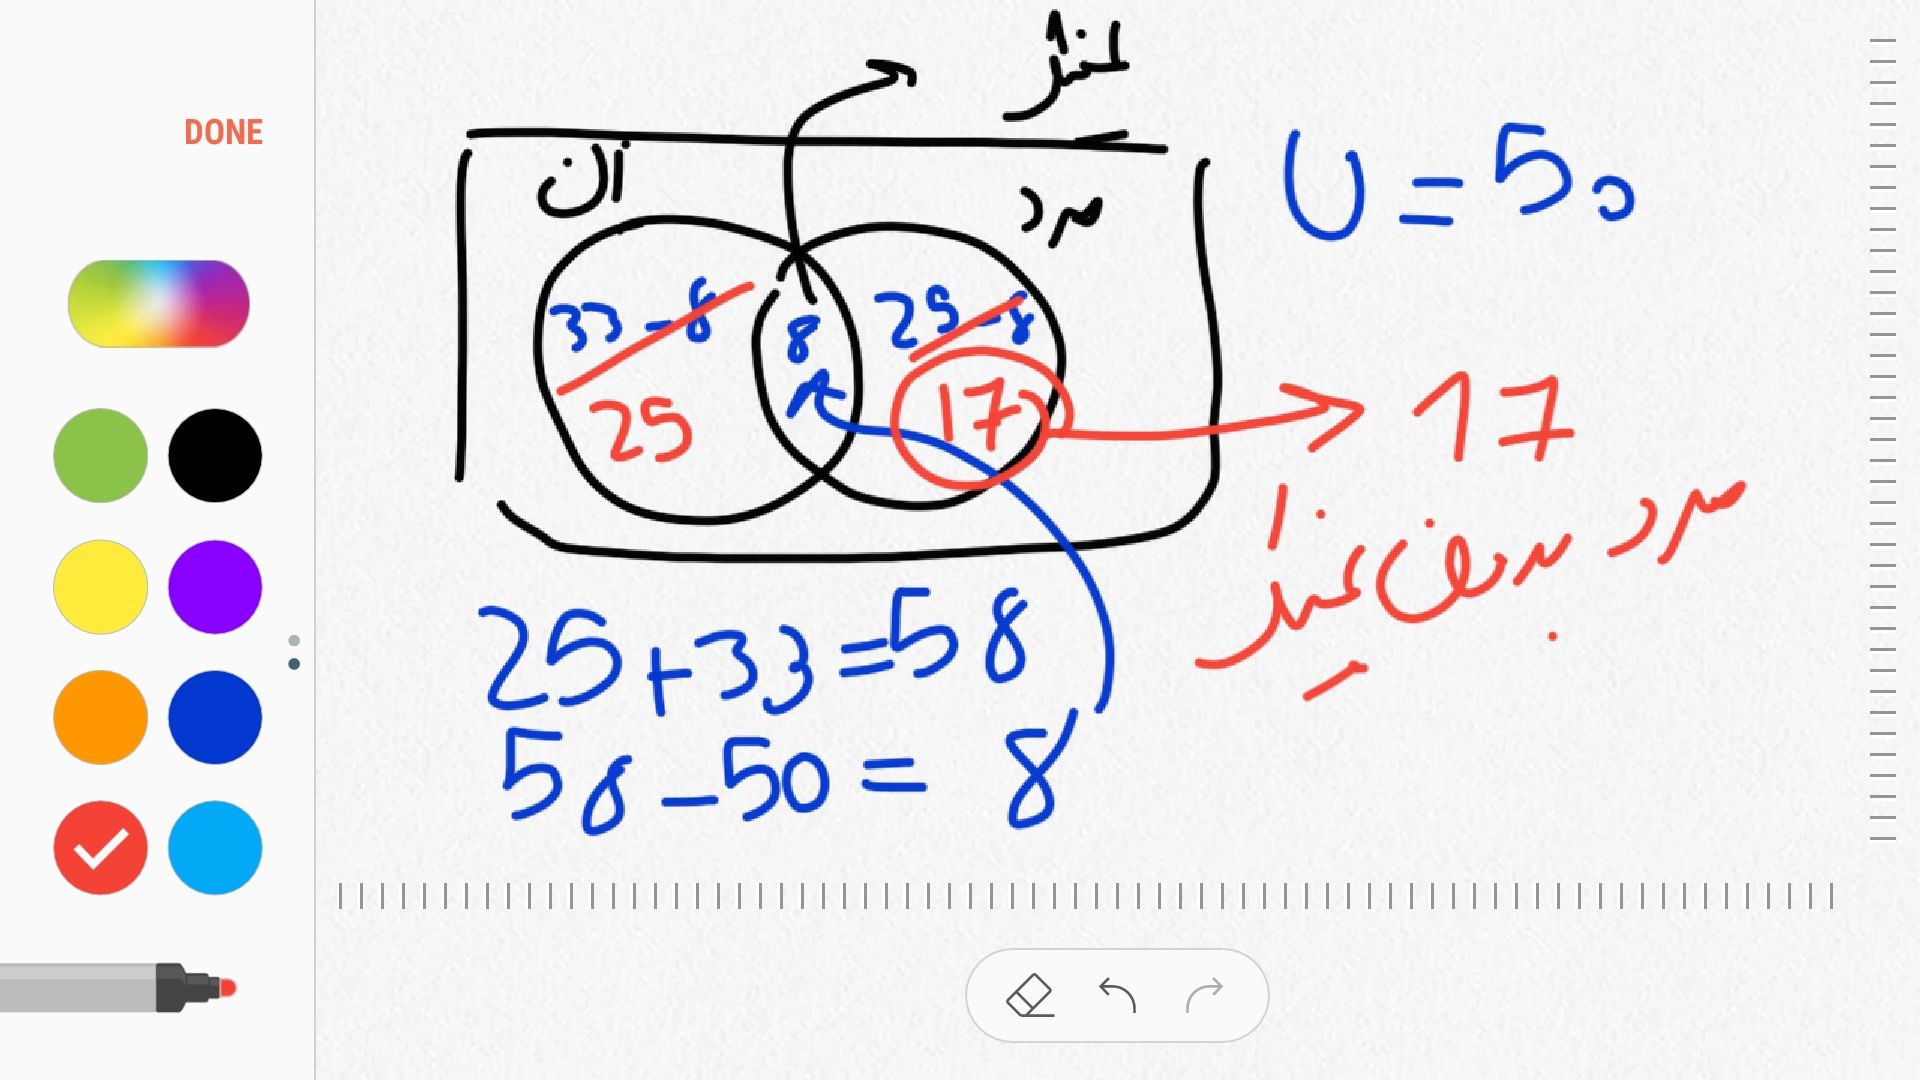 DONE
U = 50
مرد
33 - 8
8
25 - 8
25
17
17
مرد بدون عینک
25 + 33 = 58
58 - 50 = 8